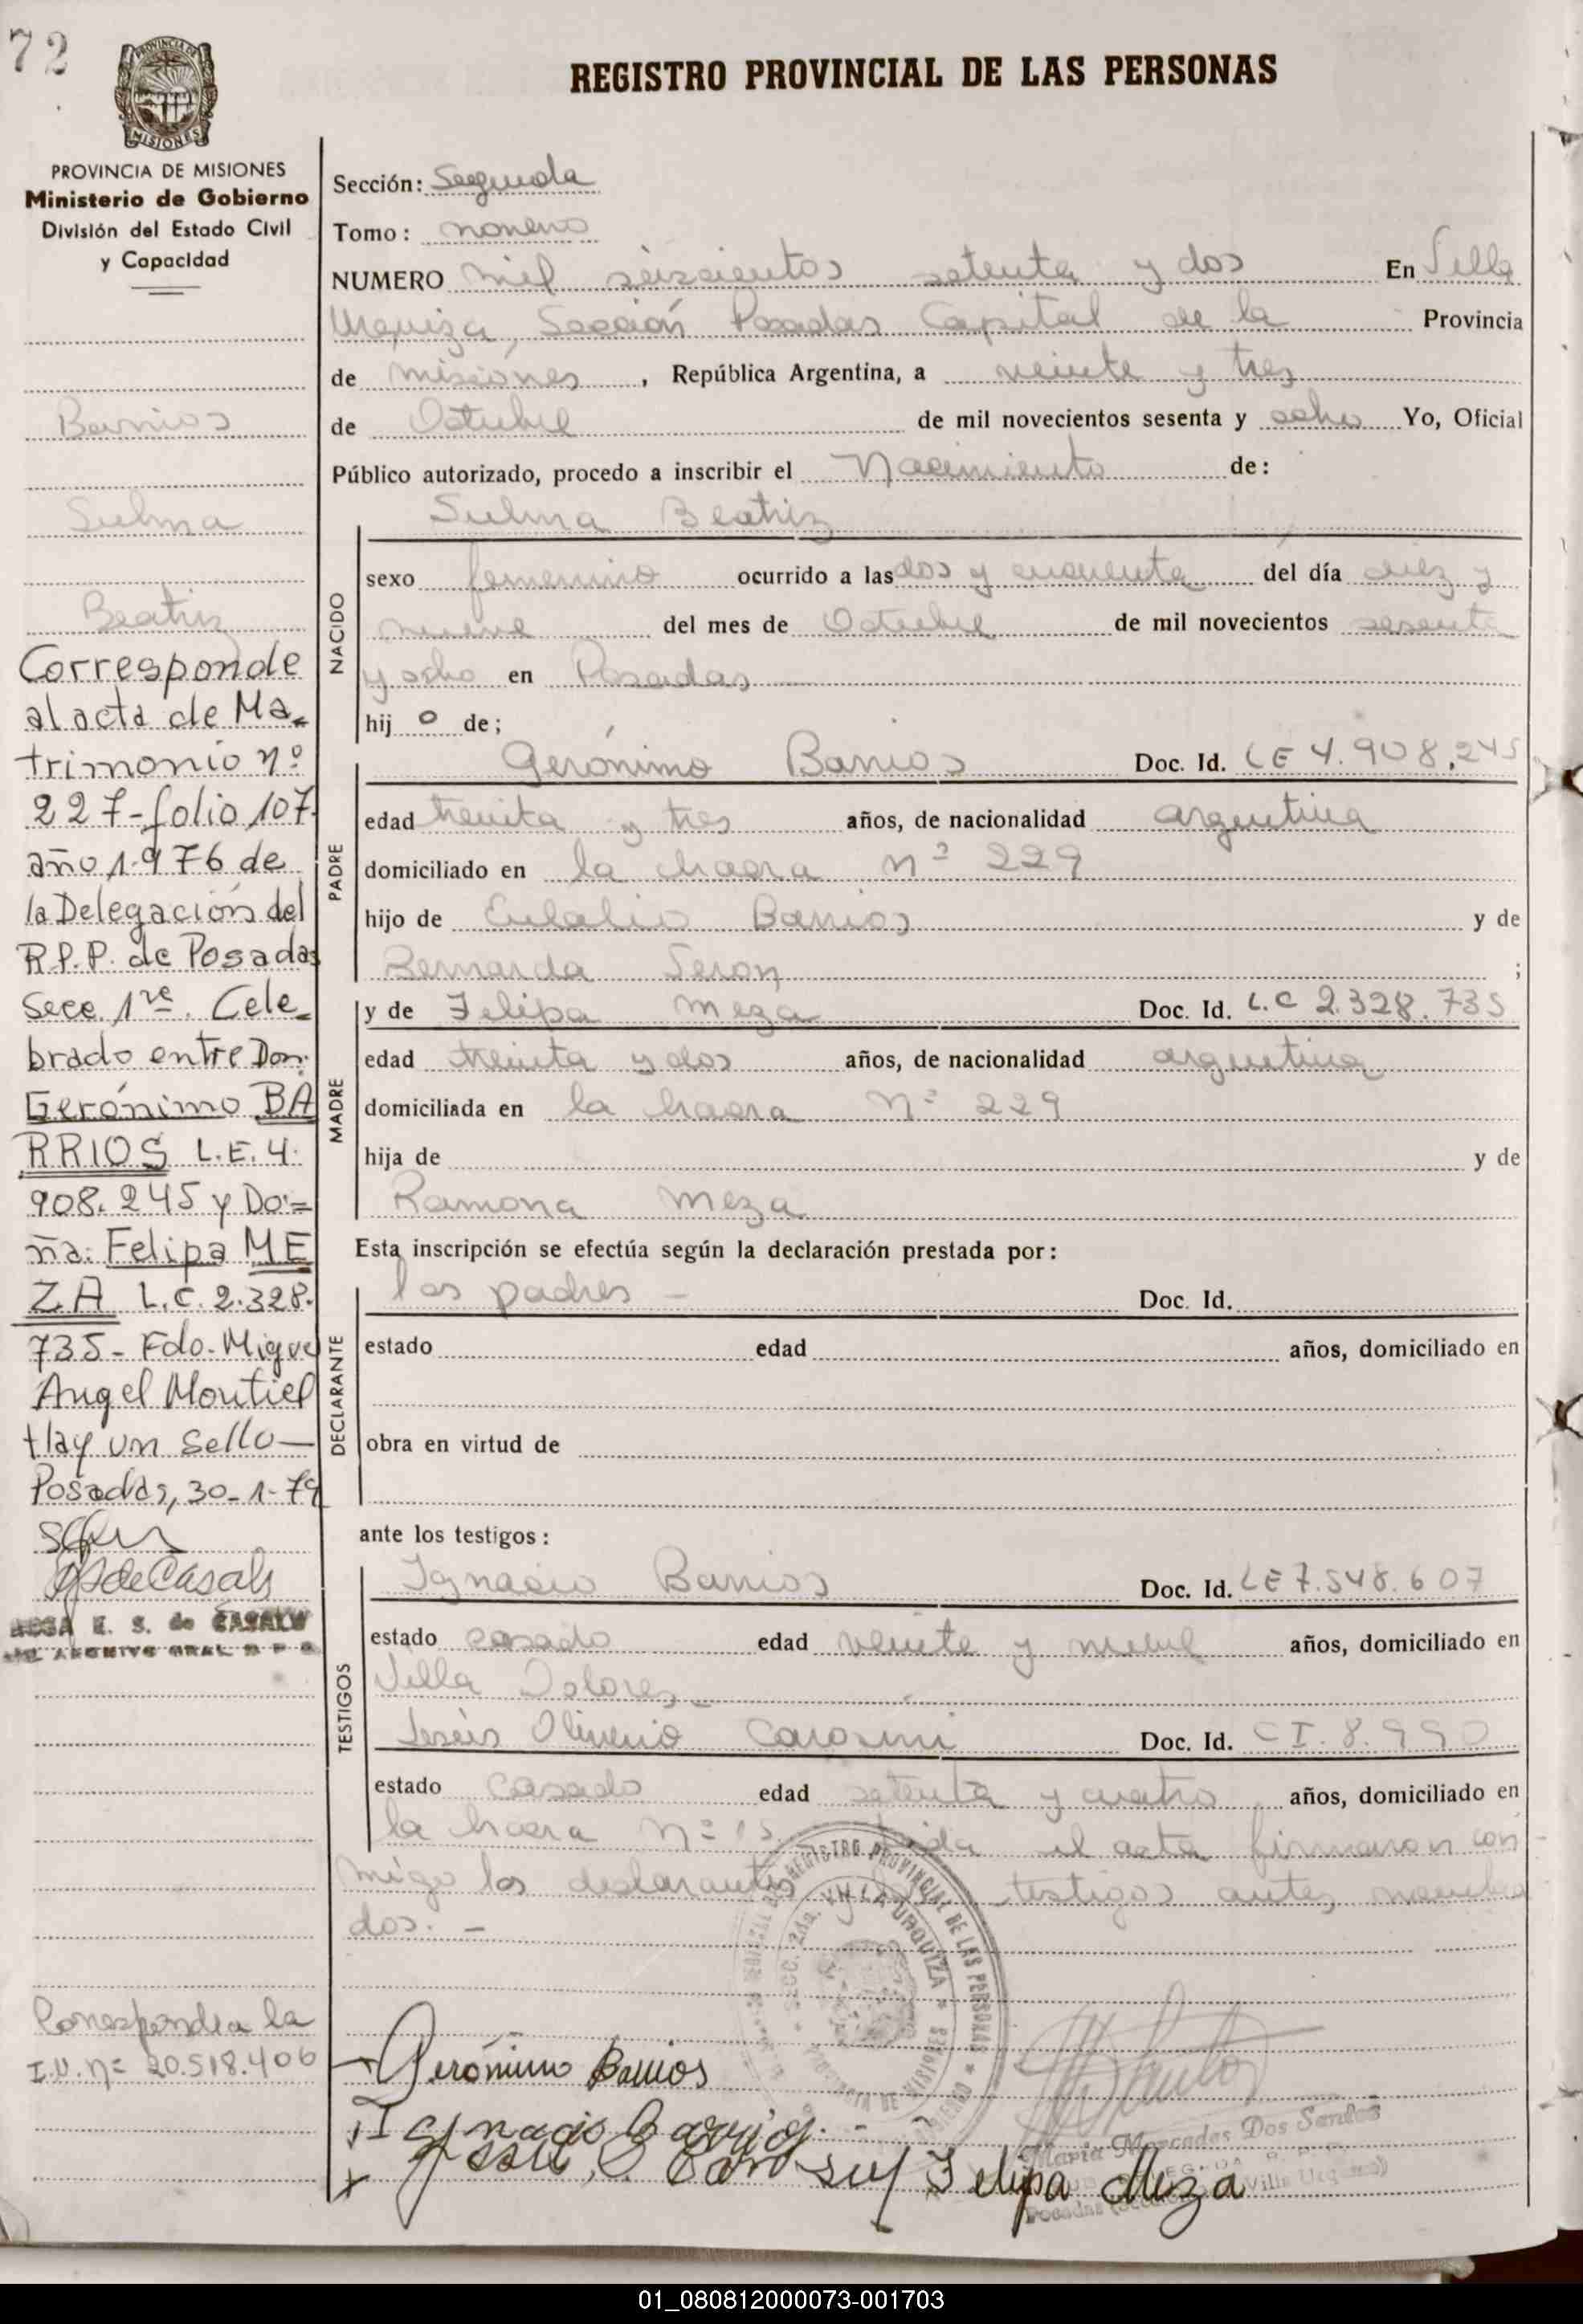 72
PROVINCIA DE
MISIONES
REGISTRO PROVINCIAL DE LAS PERSONAS
PROVINCIA DE MISIONES
Ministerio de Gobierno
División del Estado Civil
y Capacidad
Barrios
Sulma
Beatriz
Corresponde
al acta de Ma-
trimonio nº
227-folio 107-
año 1.976 de
la Delegación del
R.P.P. de Posadas
Secc. 1ra. Cele-
brado entre Don:
Gerónimo BA
RRIOS L.E. 4.
908.245 y Do=
ña: Felipa ME
ZA L.C. 2.328.
735- Fdo. Miguel
Angel Montiel
Hay un Sello—
Posadas, 30-1-79
ROSA E. S. de CASALS
Correspondea la
I.U. nº 20.518.406
Sección: Segunda
Tomo: noneno
NUMERO mil seiscientos setenta y dos En Villa
Urquiza, Sección Posadas Capital de la Provincia
de misiones, República Argentina, a veinte y tres
de Octubre de mil novecientos sesenta y ocho Yo, Oficial
Público autorizado, procedo a inscribir el Nacimiento de:
Sulma Beatriz
NACIDO
sexo femenino ocurrido a las dos y cincuenta del día diez y
nueve del mes de Octubre de mil novecientos sesenta
y ocho en Posadas
hij o de;
PADRE
Gerónimo Barrios Doc. Id. LE 4.908.245
edad treinta y tres años, de nacionalidad argentina
domiciliado en la chacra nº 229
hijo de Eulalio Barrios y de
Bernarda ;
MADRE
y de Felipa meza Doc. Id. L.C 2.328.735
edad treinta y dos años, de nacionalidad argentina
domiciliada en la chacra nº 229
hija de y de
Ramona meza
Esta inscripción se efectúa según la declaración prestada por:
DECLARANTE
los padres - Doc. Id.
estado edad años, domiciliado en
obra en virtud de
ante los testigos:
TESTIGOS
Ignacio Barrios Doc. Id. LE 7.548.607
estado casado edad veinte y nueve años, domiciliado en
Villa Dolores-
Jesús Carosini Doc. Id. CI. 8.990
estado casado edad setenta y cuatro años, domiciliado en
la chacra nº 15. leida el acta firmaron con
migo los declarantes testigos antes nombra
dos. -
REGISTRO PROVINCIAL DE LAS PERSONAS
SECC. 2da. VILLA URQUIZA
Gerónimo Barrios
Ignacio Barrios
Felipa Meza
Maria Mercedes Dos Santos
01_080812000073-001703